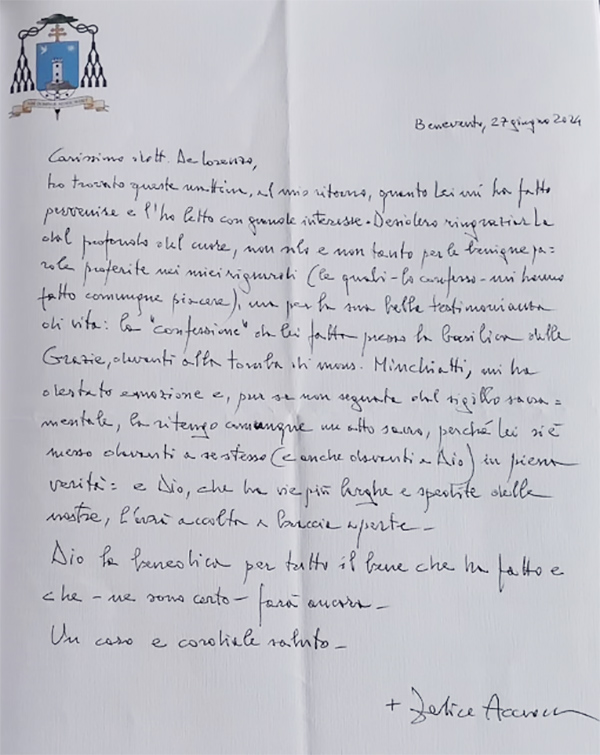 Benevento, 27 giugno 2024
Carissimo dott. De Lorenzo,
ho trovato questa mattina, al mio ritorno, quanto Lei mi ha fatto
pervenire e l'ho letto con grande interesse. Desidero ringraziarLa
dal profondo del cuore, non solo e non tanto per le benigne pa=
role proferite nei miei riguardi (le quali - lo confesso - mi hanno
fatto comunque piacere), ma per la sua bella testimonianza
di vita: la "confessione" da lei fatta presso la basilica delle
Grazie, davanti alla tomba di mons. Minchiatti, mi ha
destato emozione e, pur se non segnata dal sigillo sacra=
mentale, la ritengo comunque un atto sacro, perché Lei si è
messo davanti a se stesso (e anche davanti a Dio) in piena
verità: e Dio, che ha vie più larghe e spedite delle
nostre, l'avrà accolta a braccia aperte -
Dio la benedica per tutto il bene che ha fatto e
che - ne sono certo - farà ancora -
Un caro e cordiale saluto -
+ Felice Accrocca